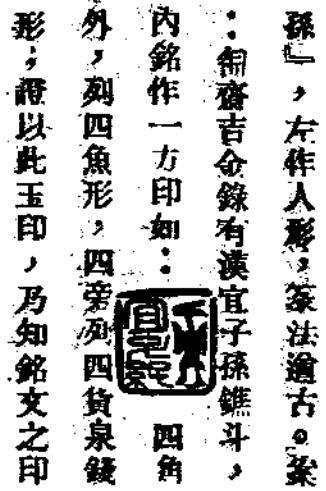 孫』，左作人形，篆法遒古。案
：匋齋吉金錄有漢宜子孫鐎斗，
內銘作一方印如： 四角
外，列四魚形，四旁列四貨泉錢
形，證以此玉印，乃知銘文之印